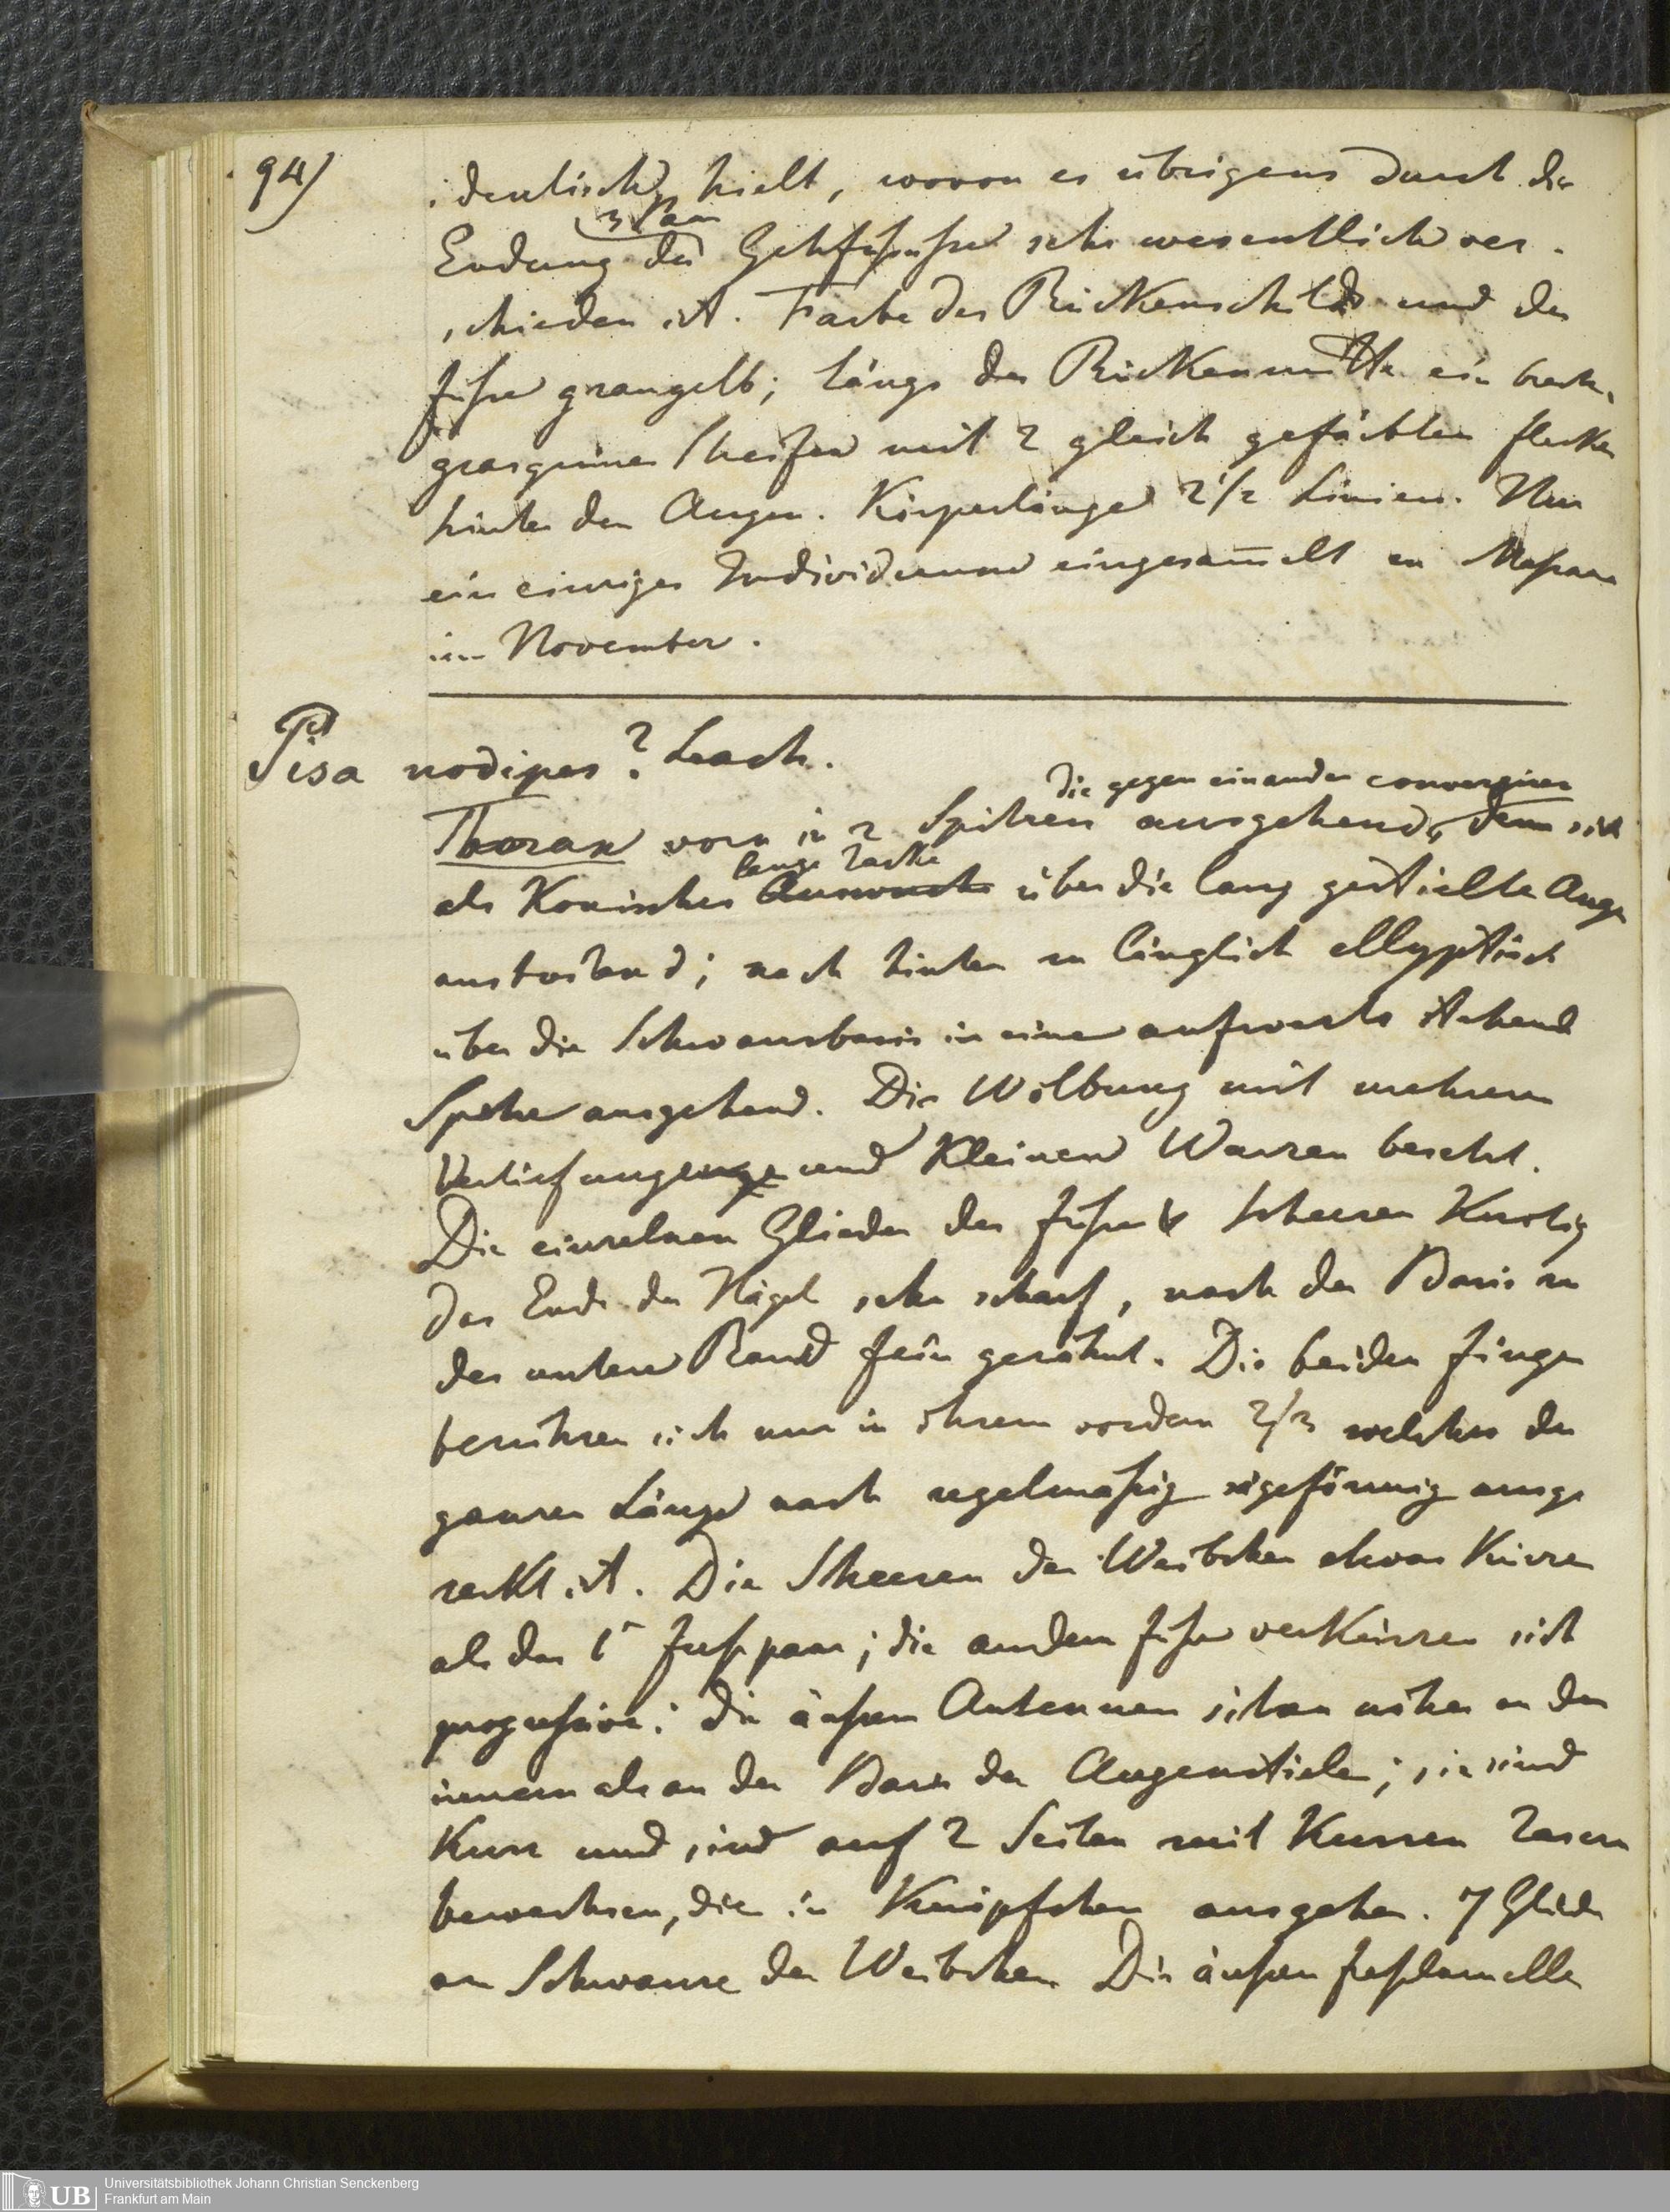 94)
identisch hielt, wovon er übrigens durch die
3 Paar
Endung der Gehfüsse sehr wesentlich ver-
schieden ist. Farbe des Rückenschilds und der
Füsse graugelb; längs der Rückenmitte ein breiter
grasgrüner Streifen mit 2 gleich gefärbten Flecken
hinter den Augen. Körperlänge 2 1/2 Linien. Nur
ein einziges Individuum eingesammelt in
im November.
Pisa nodipes? Leach.
die gegen einander convergiren
Thorax vorn in 2 Spitzen ausgehend, dem sich
lange Zacke
als konisches Auswuchs über die lang gestielte Auge
austossend; nach hinten zu länglich ellyptisch
über die Schwanzbasis in eine aufwerts stehend
Spitze ausgehend. Die Wölbung mit mehrern
Vertiefungen und kleinen Warzen besetzt.
Die einzelnen Glieder der Füsse & Scheeren knotig
das Ende der Nägel sehr scharf, nach der Basis zu
der untere Rand fein gezähnt. Die beiden Finger
berühren sich nur in ihrem vordern 2/3 welches der
ganzen Länge nach regelmässig sägeförmig ausge
zackt ist. Die Scheeren der Weibchen etwas kürzer
als das 1t Fusspaar; die andern Füsse verkürzen sich
progressive: die äussern Antennen sitzen näher an den
innern als an der Basis der Augenstiele; sie sind
kurz und sind auf 2 Seiten mit kurzen Zasern
bewachsen, die in Knöpfchen ausgehen. 7 Glieder
am Schwanze der Weibchen Die äussern Fusslamelle
Universitätsbibliothek Johann Christian Senckenberg
UB Frankfurt am Main